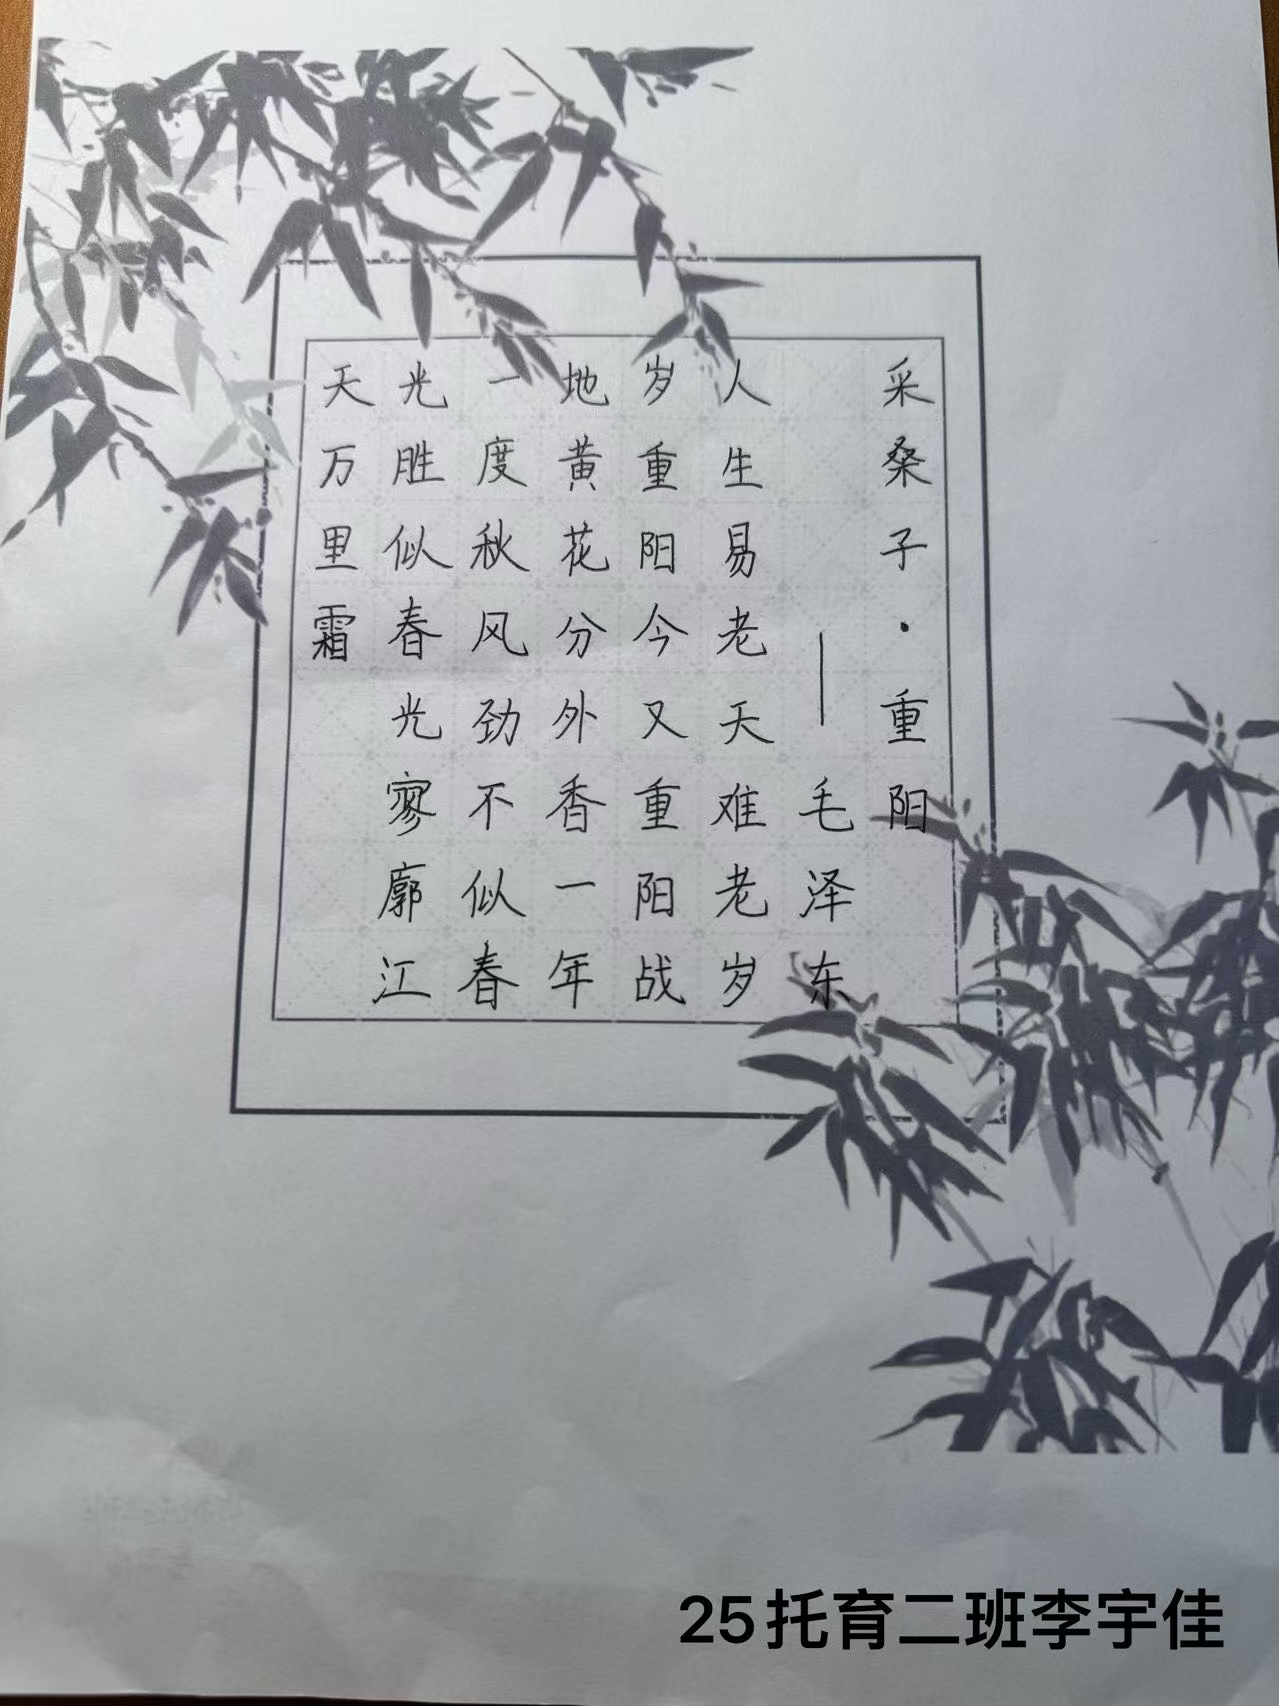 采桑子·重阳
——毛泽东
人生易老天难老岁
岁重阳今又重阳战
地黄花分外香一年
一度秋风劲不似春
光胜似春光寥廓江
天万里霜
25托育二班李宇佳